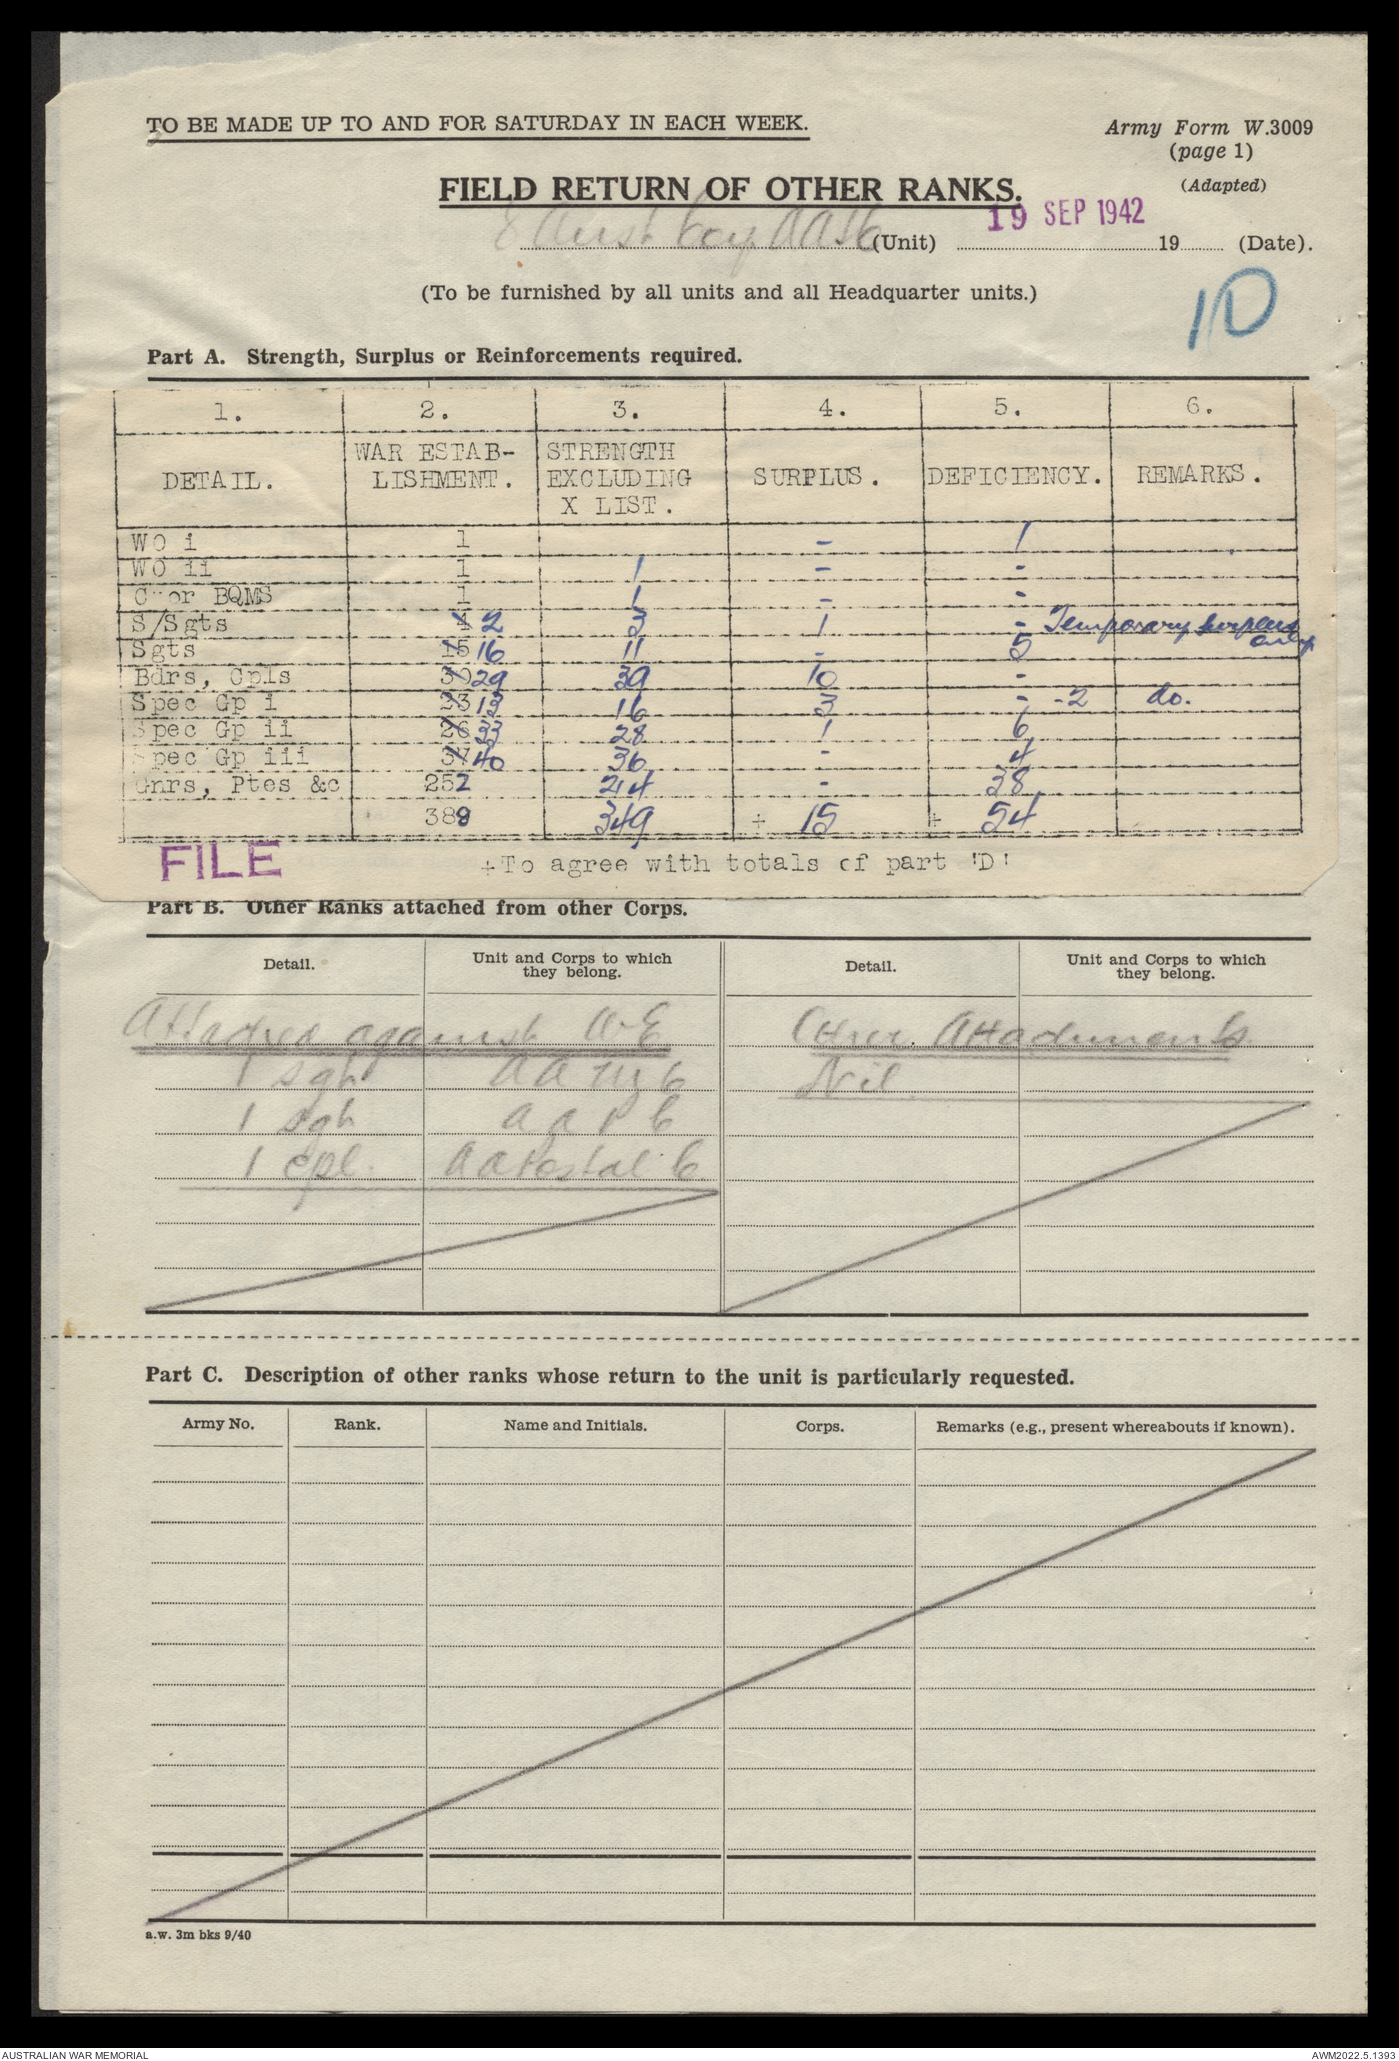 TO BE MADE UP TO AND FOR SATURDAY IN EACH WEEK.
Army Form W.3009
(page 1)
(Adapted)
FIELD RETURN OF OTHER RANKS.
8 Aust Coy AASC (Unit) 19 SEP 1942 19 (Date).
(To be furnished by all units and all Headquarter units.)
10
Part A. Strength, Surplus or Reinforcements required.
1. 2. 3. 4. 5. 6.
DETAIL. WAR ESTAB-LISHMENT. STRENGTH EXCLUDING X LIST. SURPLUS. DEFICIENCY. REMARKS.
WO i 1 - 1
WO ii 1 1 - -
C or BQMS 1 1 - -
S/Sgts 4 2 3 1 - Temporary surplus only
Sgts 15 16 11 - 5
Bdrs, Cpls 30 29 39 10 -
Spec Gp i 23 13 16 3 - -2 do.
Spec Gp ii 26 33 28 1 6
Spec Gp iii 37 40 36 - 4
Gnrs, Ptes &c 252 214 - 38
388 349 + 15 + 54
FILE
+To agree with totals of part 'D'
Part B. Other Ranks attached from other Corps.
Detail. Unit and Corps to which they belong. Detail. Unit and Corps to which they belong.
Attached against W-E Other Attachments
1 Sgt AAMC Nil
1 Sgt AAPC
1 Cpl. AAPostal C
Part C. Description of other ranks whose return to the unit is particularly requested.
Army No. Rank. Name and Initials. Corps. Remarks (e.g., present whereabouts if known).
a.w. 3m bks 9/40
AUSTRALIAN WAR MEMORIAL
AWM2022.5.1393